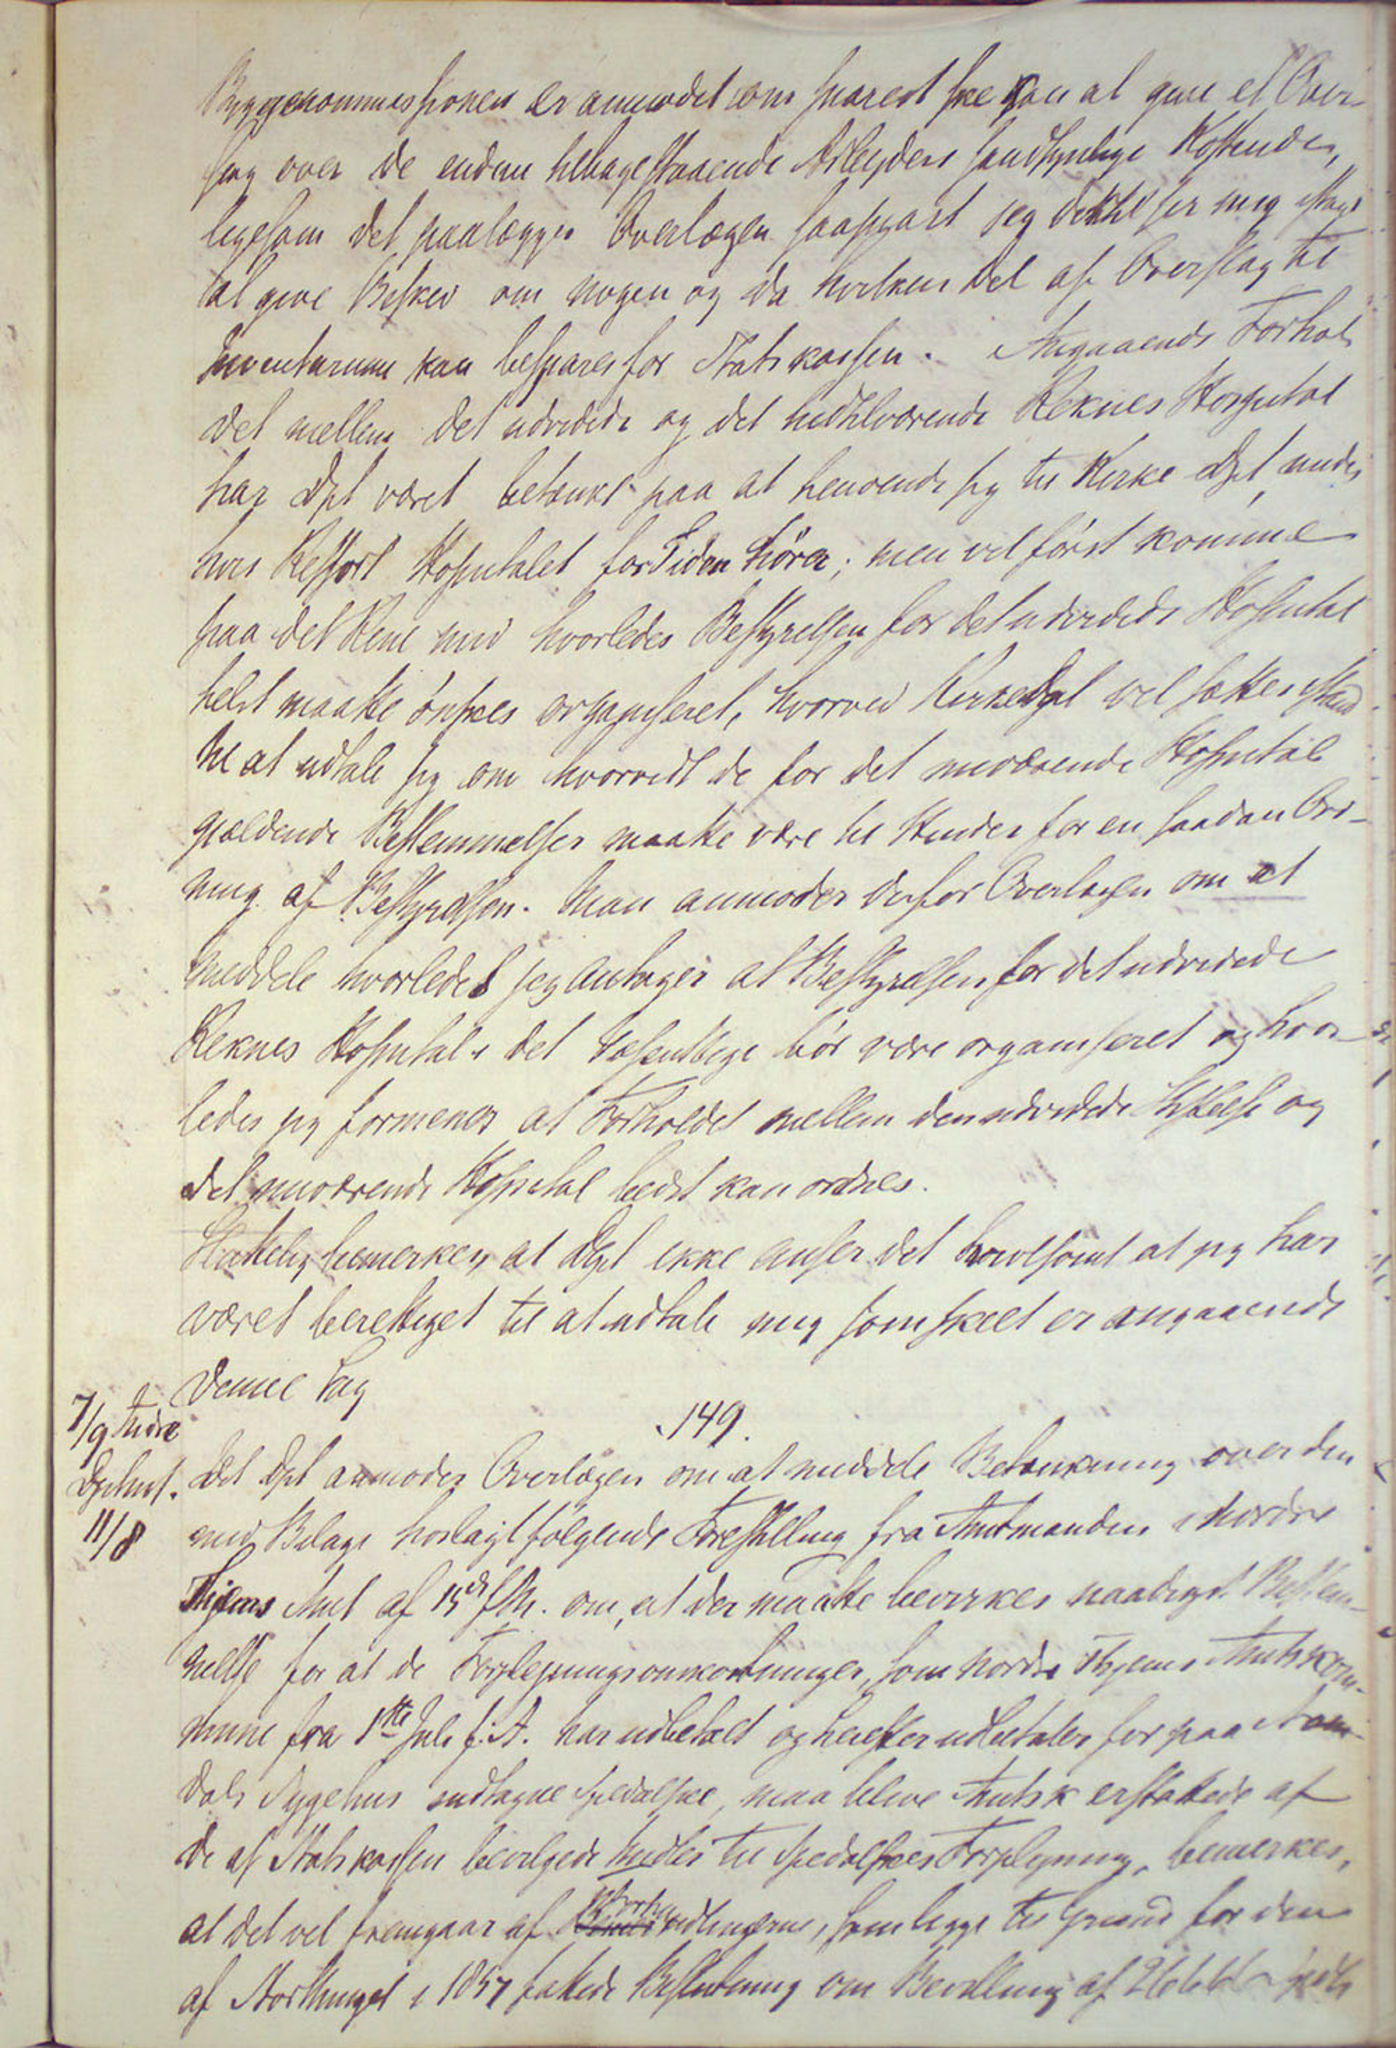 Byggekommissionen er anmodet om snarest ske kan at give et Over-
slag over de endnu tilbagestaaende Arbeiders sandsynlige Kostende,
ligesom det paalægges Overlægen saasnart jeg dertil ser mig istand
at give Besked om nogen og da hvilken Del af Overslag til
Inventarium kan bespares for Statskassen. Angaaende Forhol-
det mellem det udvidede og det hidtilværende Reknes Hospital
har Dpt været betænkt paa at henvende sig til Kirke Dpt, under
hvis Ressort Hospitalet for Tiden hører; men vil først komme
paa det Rene med hvorledes Bestyrelsen for det udvidede Hospital
helst maatte ønskes organiseret, hvorved Kirkedpt vil sættes istand
til at udtale sig om hvorvidt de for det nuværende Hospital
gjældende Bestemmelser maatte være til Hinder for en saadan Ord-
ning af Bestyrelsen. Man anmoder derfor Overlægen om at
meddele hvorledes jeg antager at Bestyrelsen for det udvidede
Reknes Hospital i det Væsentlige bør være organiseret og hvor-
ledes jeg formener at Forholdet mellem den udvidede Stiftelse og
det nuværende Hospital bedst kan ordnes.
Sluttelig bemerkes, at Dpt ikke anser det tvivlsomt at jeg har
været berettiget til at udtale mig som skeet er angaaende
denne Sag
7/9 Indre
Dpmt.
11/8
149.
Det Dpt anmoder Overlægen om at meddele Betænkning over den
med Bilage hoslagt følgende Forestilling fra Amtmanden i Nordre
Thjems Amt af 15de f.M. om, at der maatte bevirkes naadigst Bestem-
melse for at de Forplejningsomkostninger, som Nordre Thjems Amtskom-
mune fra 1ste Juli f.A. har udbetalt og herefter udbetaler for paa Nam-
dals Sygehus indtagne Spedalske, maa blive Amtsk erstattede af
de af Statskassen bevilgede Midler til Spedalskes Forplejning, bemerkes,
at det vel fremgaar af Forhandlingerne, som ligge til Grund for den
af Storthinget i 1857 fattede Beslutning om Bevilling af